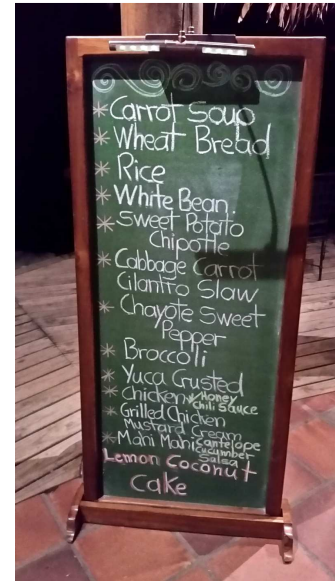 * Carrot Soup
* Wheat Bread
* Rice
* White Bean.
* Sweet Potato
Chipotle
* Cabbage Carrot
Cilantro Slaw
* Chayote Sweet
Pepper
* Broccoli
* Yuca Crusted
* Chicken w/ Honey
Chili Sauce
* Grilled Chicken
Mustard Cream
* Mahi Mahi Cantelope
Cucumber
Salsa
Lemon Coconut
Cake